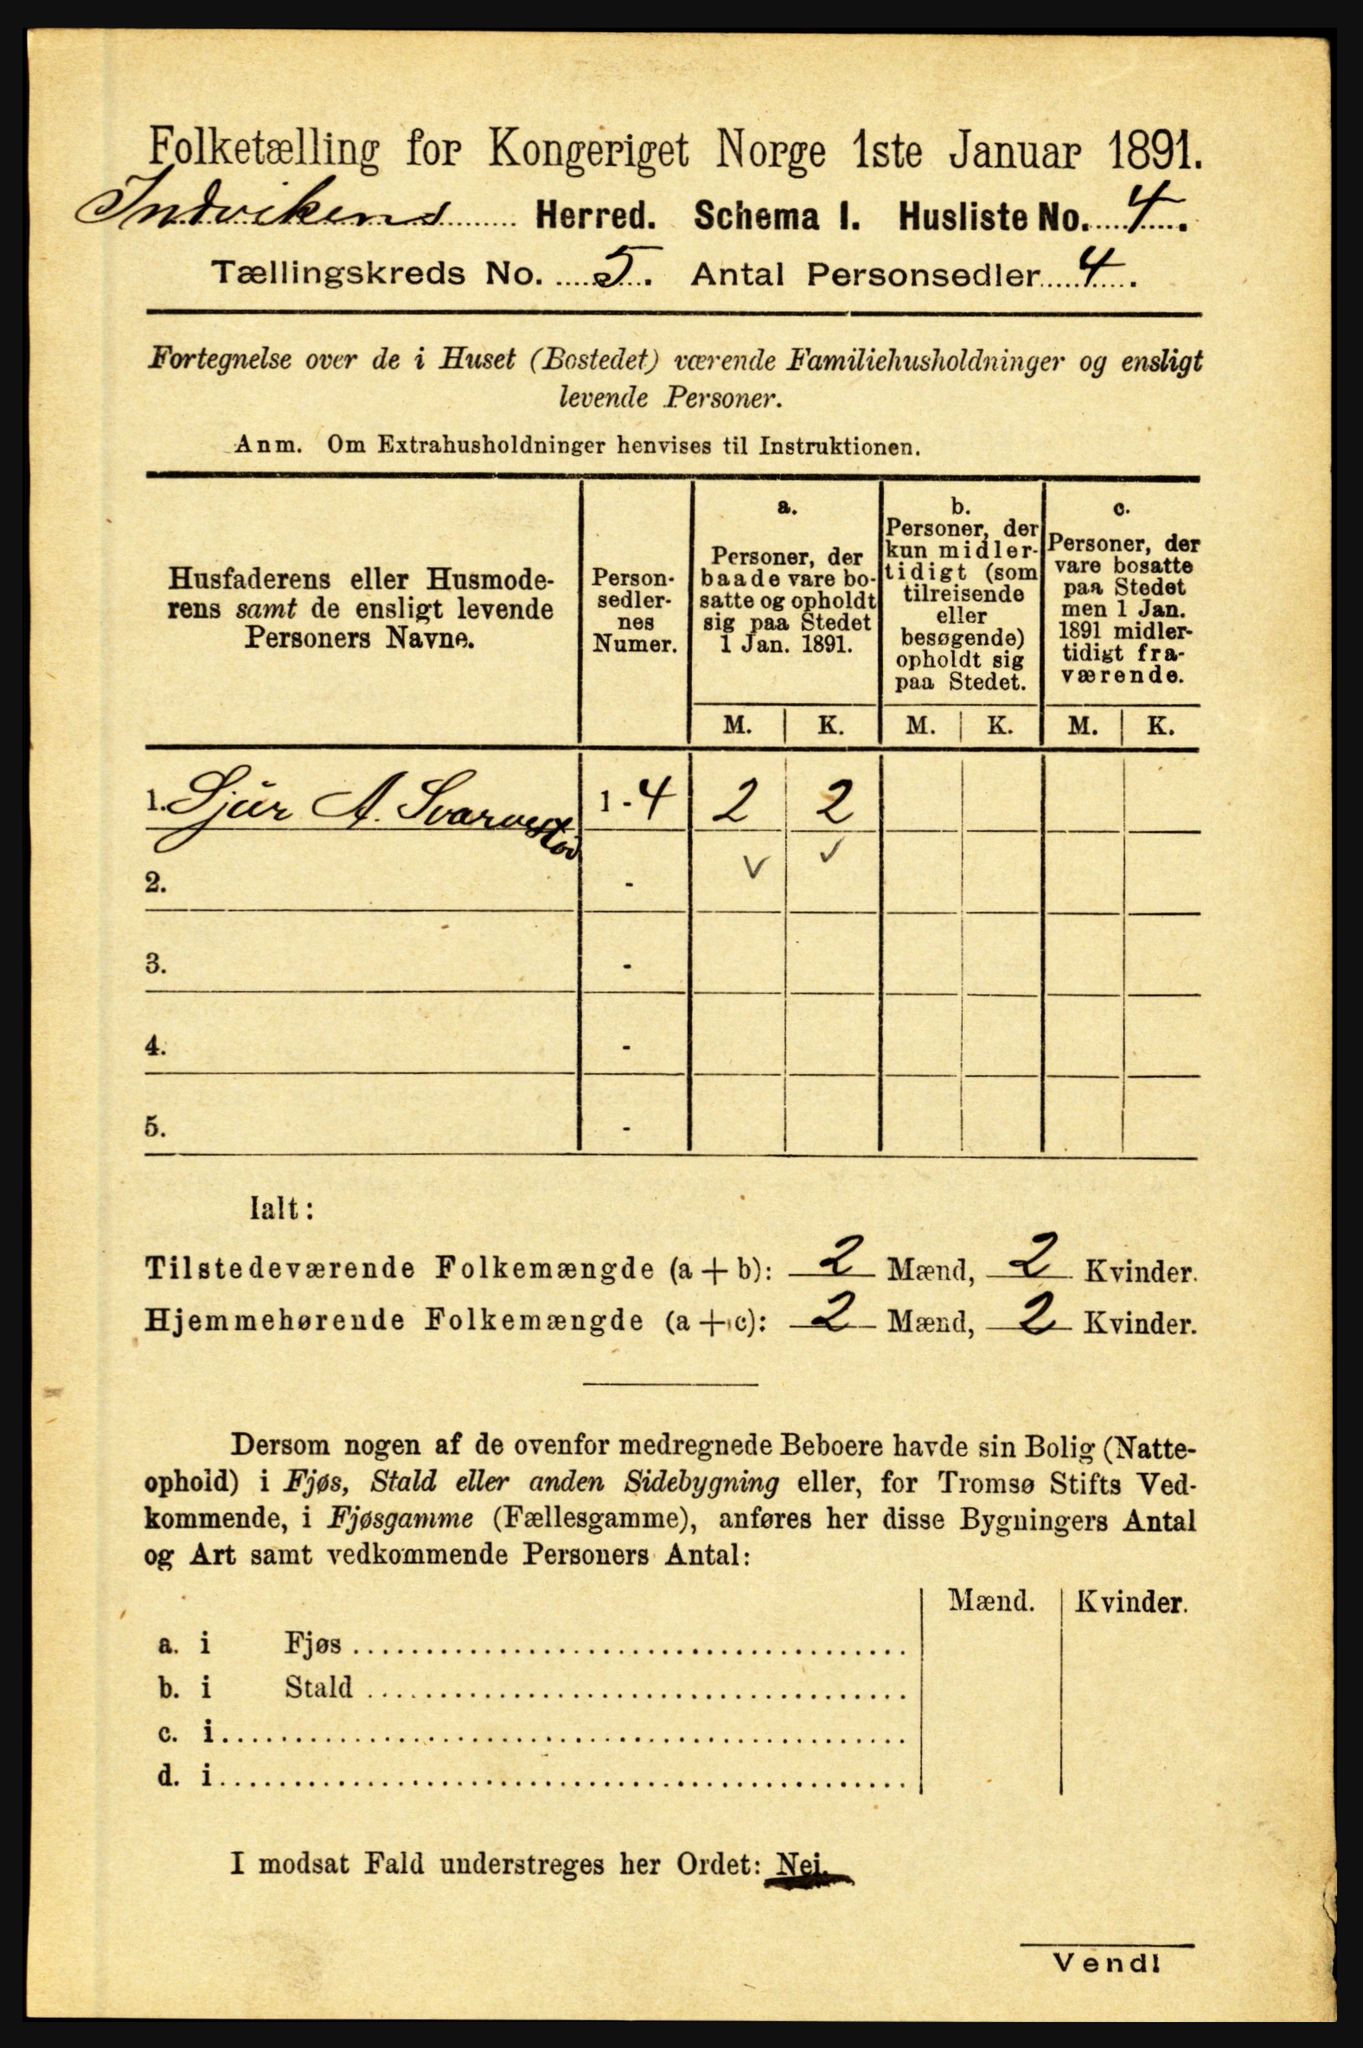 Folketælling for Kongeriget Norge 1ste Januar 1891.
Indvikens Herred. Schema I. Husliste No. 4.
Tællingskreds No. 5. Antal Personsedler 4.
Fortegnelse over de i Huset (Bostedet) værende Familiehusholdninger og ensligt
levende Personer.
Anm. Om Extrahusholdninger henvises til Instruktionen.
Husfaderens eller Husmode-
rens samt de ensligt levende
Personers Navne.
Person-
sedler-
nes
Numer.
a.
Personer, der
baade vare bo-
satte og opholdt
sig paa Stedet
1 Jan. 1891.
b.
Personer, der
kun midler-
tidigt (som
tilreisende
eller
besøgende)
opholdt sig
paa Stedet.
c.
Personer, der
vare bosatte
paa Stedet
men 1 Jan.
1891 midler-
tidigt fra-
værende.
M. K. M. K. M. K.
1. Sjur A. Svarvestød 1 - 4 2 2
2. - v v
3. -
4. -
5. -
Ialt:
Tilstedeværende Folkemængde (a + b): 2 Mænd, 2 Kvinder.
Hjemmehørende Folkemængde (a + c): 2 Mænd, 2 Kvinder.
Dersom nogen af de ovenfor medregnede Beboere havde sin Bolig (Natte-
ophold) i Fjøs, Stald eller anden Sidebygning eller, for Tromsø Stifts Ved-
kommende, i Fjøsgamme (Fællesgamme), anføres her disse Bygningers Antal
og Art samt vedkommende Personers Antal:
Mænd. Kvinder.
a. i Fjøs
b. i Stald
c. i
d. i
I modsat Fald understreges her Ordet: Nei.
Vendl